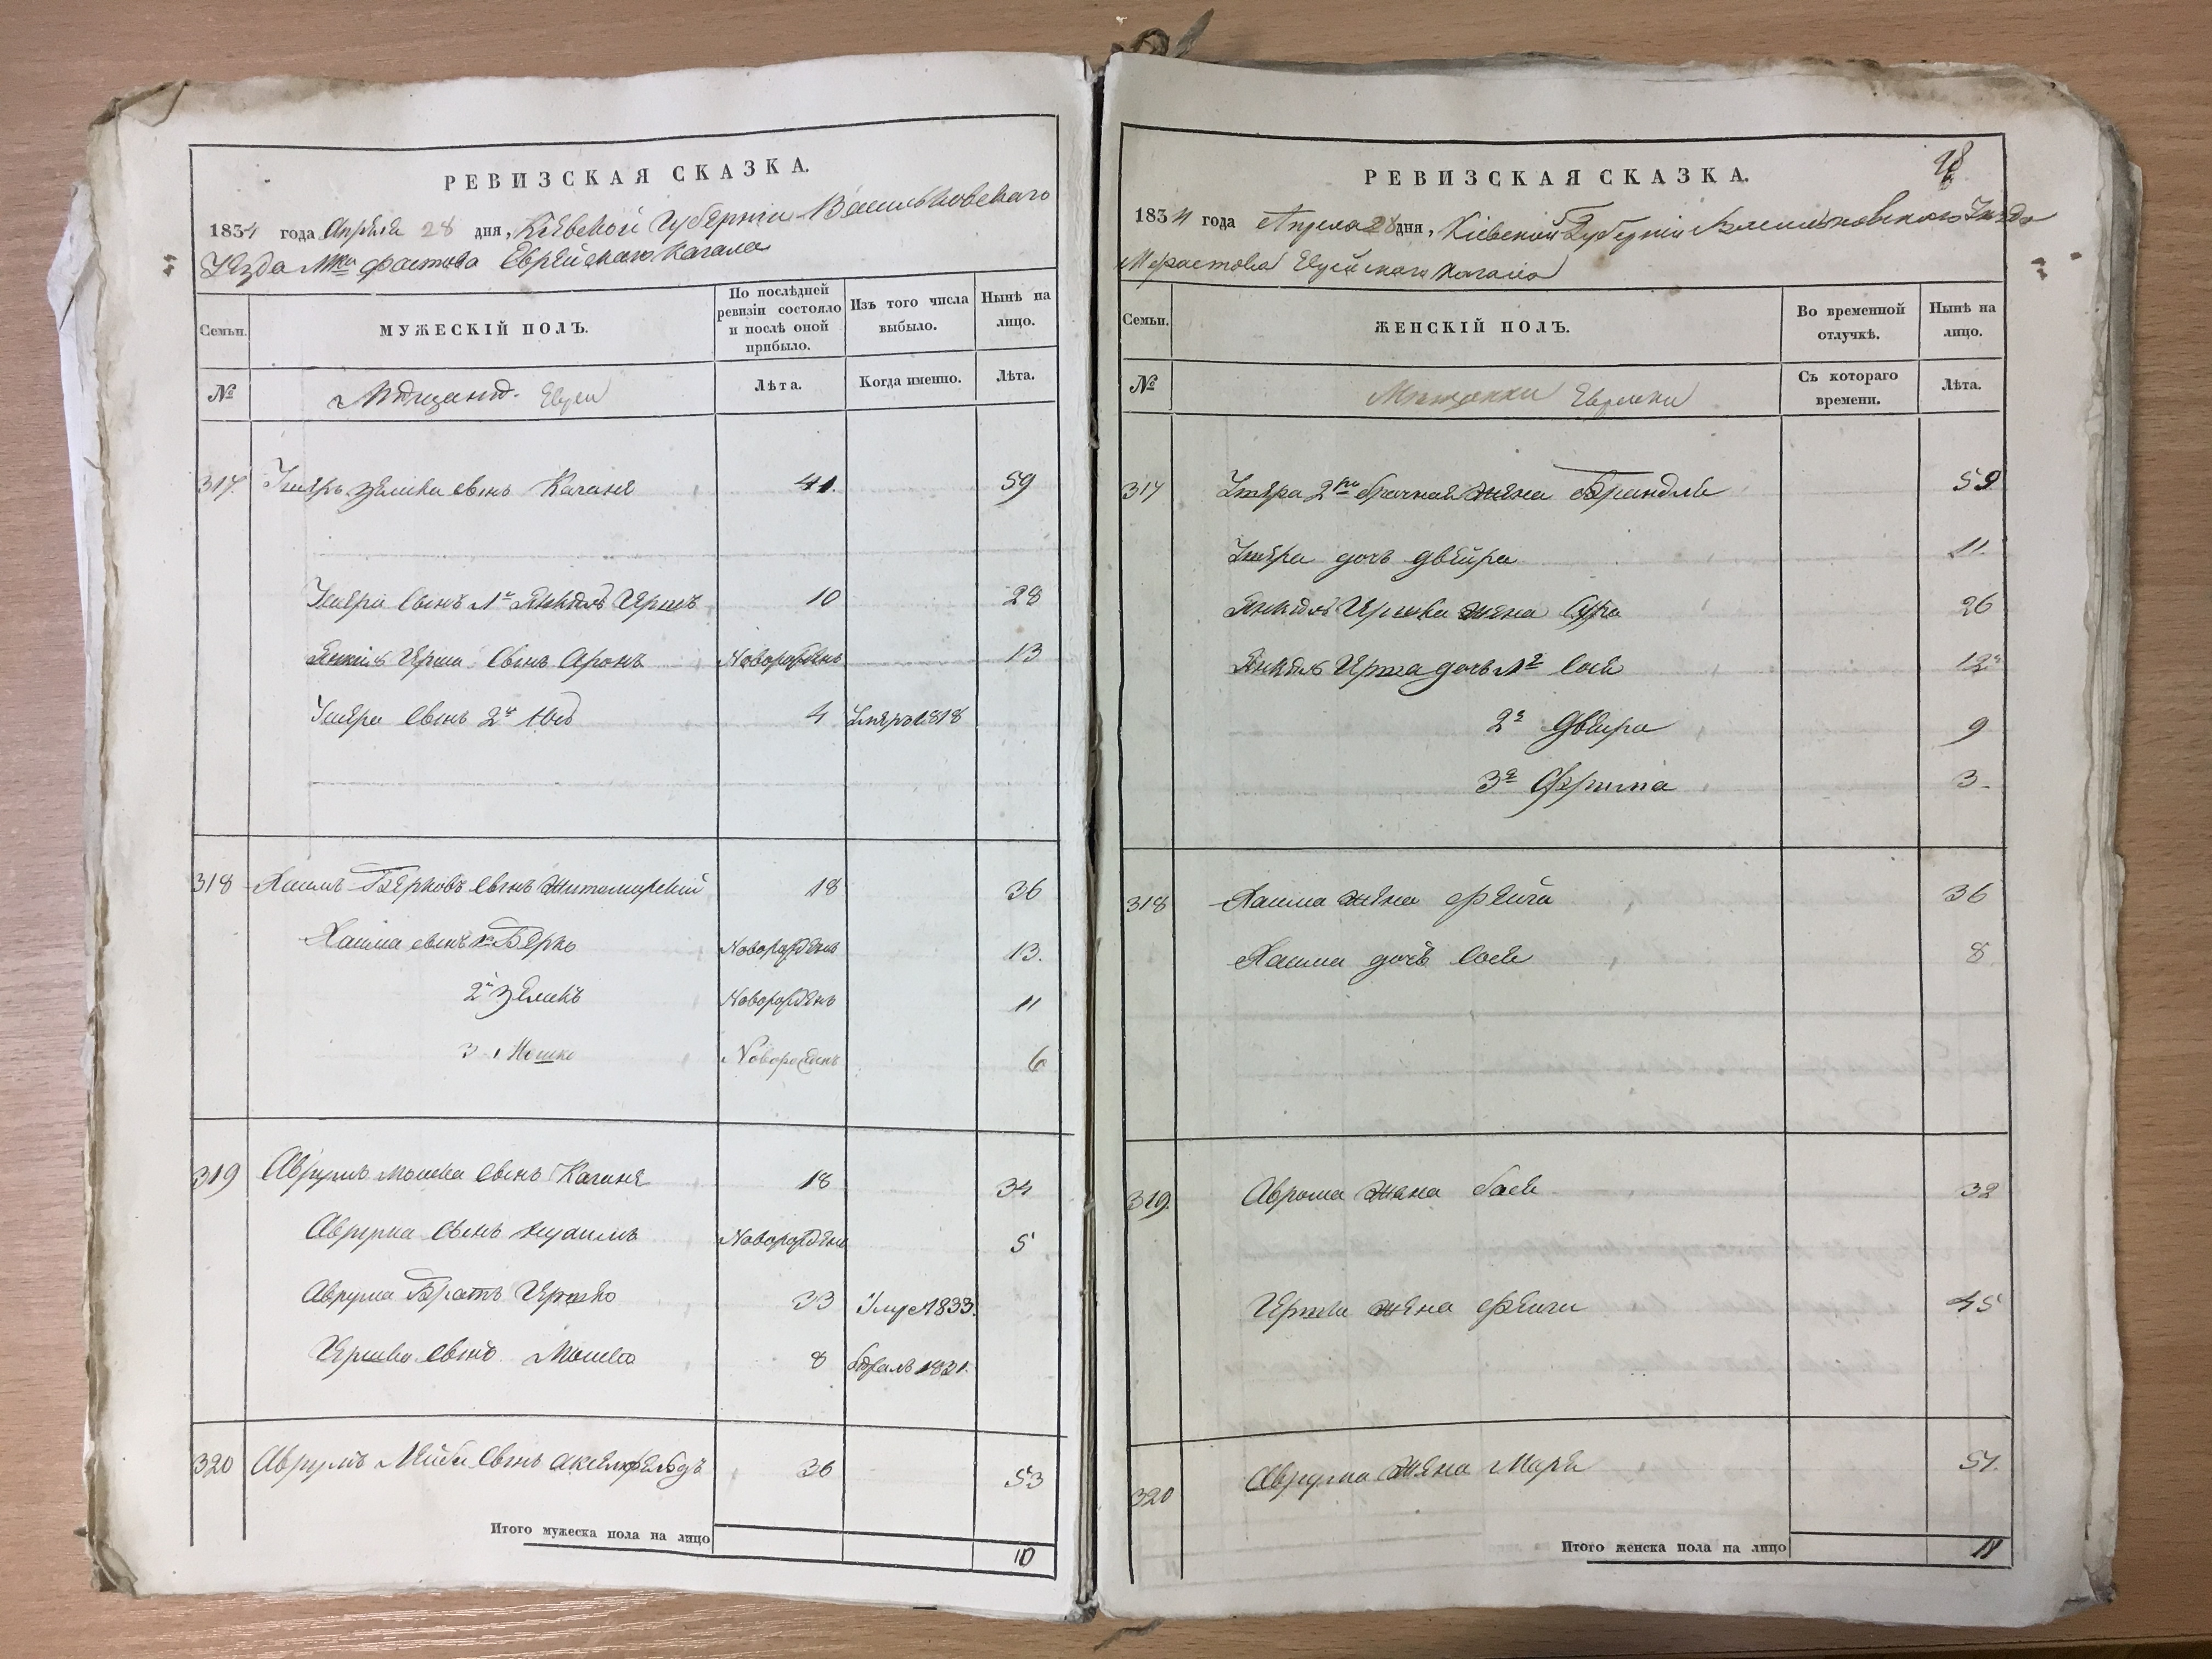 РЕВИЗСКАЯ СКАЗКА.
1834 года Апреля 28 дня, Кіевской Губерніи Васильковскаго
Уезда Мка Фастова Еврейскаго Кагала
Семьи.
МУЖЕСКІЙ ПОЛЪ.
По послѣдней ревизіи состояло и послѣ оной прибыло.
Изъ того числа выбыло.
Нынѣ на лицо.
№
Мѣщане Евреи
Лѣта.
Когда именно.
Лѣта.
317 Зелика сынъ Кагане 41. 59
сынъ 1й Янкель Герш 10 28
Янкель Герша сынъ Аронъ Новорожден 13
сынъ 2й 4 умеръ 1818
318 Хаимъ Берковъ сынъ Житомирский 18 36
Хаима сынъ 1й Берко Новорожден 13.
2й Зелик Новорожден 11
3 Мошко Новорожден 6
319 Аврумъ Мошка сынъ Кагане 18 34
Аврума сынъ Новорожден 5
Аврума Братъ Гершко 33 1833.
Гершка сынъ Мошко 8 1831.
320 Аврумъ Лейбы сынъ Аксельфельдъ 36 53
Итого мужеска пола на лицо 10
98
РЕВИЗСКАЯ СКАЗКА.
1834 года Апреля 28 дня, Кіевской Губерніи Васильковского Уезда
М Фастова Еврейскаго Кагала
Семьи.
ЖЕНСКІЙ ПОЛЪ.
Во временной отлучкѣ.
Нынѣ на лицо.
№
Мѣщанки Еврейки
Съ котораго времени.
Лѣта.
317 2го брачная жена Бриндля 59
дочь Двейра 11.
Янкеля Гершка жена Сура 26
Янкеля Герша дочь 1я Сося 12
2я Двейра 9
3я Фрима 3
318 Хаима жена Фейга 36
Хаима дочь Сося 8
319. Аврома жена Бася 32
Гершка жена Фейга 45
320 Аврума жена Маря 51.
Итого женска пола на лицо 11